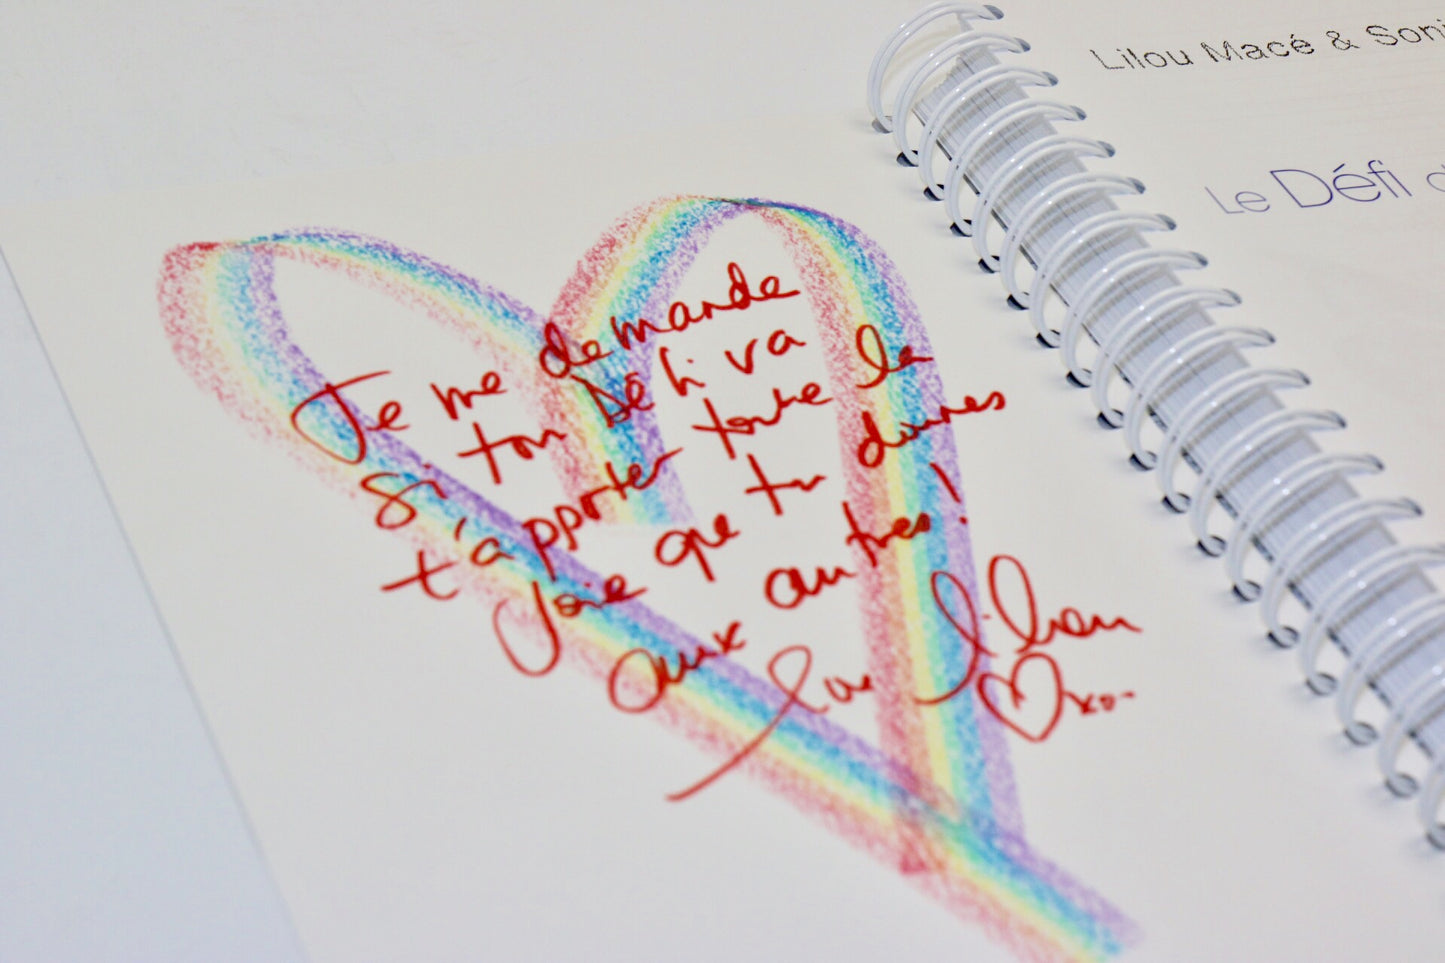 Je me demande
si ton Défi va
t'apporter toute la
Joie que tu donnes
aux autres!
Love Lilou
xo
Lilou Macé & Soni
Le Défi d